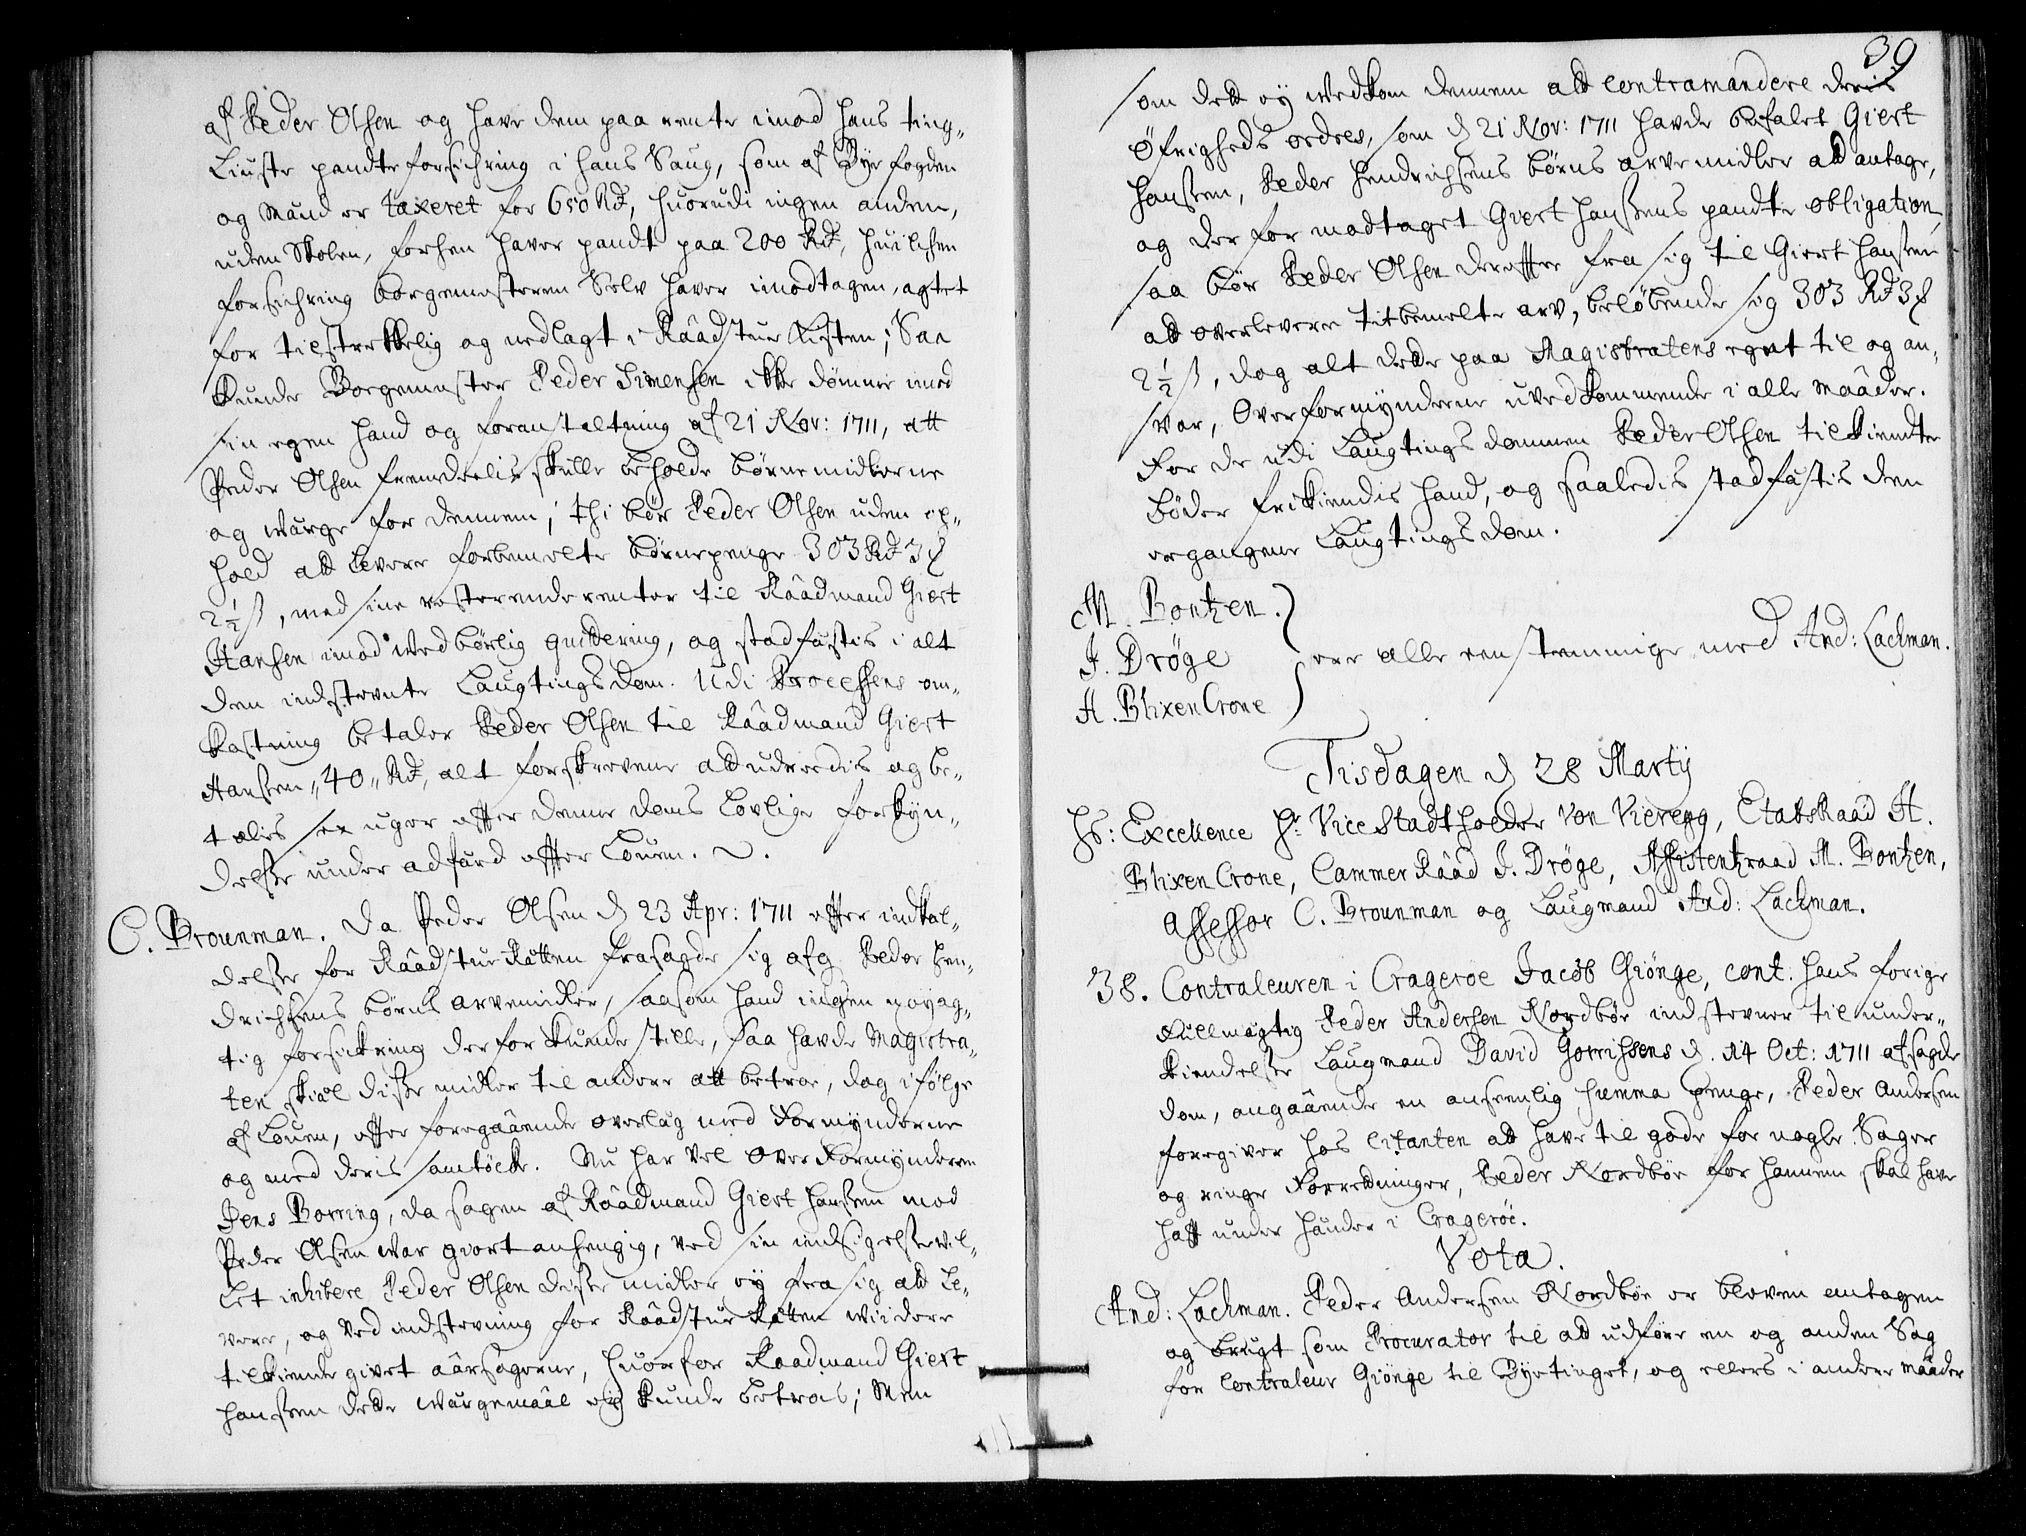 af Peder Olsen og have dem paa rente imod hans ting„
Liuste pandte forsichring i hans Saug, som af Bye fogden
og Mænd er taxeret for 650 Rd, huorudi ingen anden,
uden Skolen, forhen haver pandt paa 200 Rd, huilchen
forsichring borgemesteren Selv haver imodtagen, agtet
for tilstrekkelig og nedlagt i Raadstue Kisten; Saa
kunde Borgemester Peder Simensen ikke dømme imod
sin egen haand og foranstaltning af 21 Nov: 1711, att
Peder Olsen fremdeelis skulle beholde børne midlerne
og værge for dennem; thi bør Peder Olsen uden op„
hold att levere forbemelte børnepenge 303 Rd 3 ȷ
2½ s, med sine resterende renter til Raadmand Giert
Hansen imod vedbørlig quittering, og stadfæstis i alt
den indstevnte Laugtings dom. Udi Processens om„
kostning betaler Peder Olsen til Raadmand Giert
Hansen „40„ Rd, alt forskrevene att udreedis og be„
talis sex uger effter denne doms lovlige forkyn„
delse under adfærd effter Louen.
C. Brounman. Da Peder Olsen d 23 Apr: 1711 effter indkal„
delse for Raadstue Retten frasagde sig afg Peder Hen„
drichsens børns arvemidler, saasom hand ingen nøyag„
tig forsickring derfor kunde stille, saa havde Magistra„
ten skiæl disse midler til andere att betroe, dog i følge
af Louen, effter foregaaende overlæg med Formynderne
og med deris samtøcke. Nu har vel Over Formynderen
Jens Borring, da sagen af Raadmand Giert Hansen mod
Peder Olsen war giort anhengig, ved sin indsigelse vil„
let inhibere Peder Olsen disse midler ey fra sig att Le„
vere, og ved indstevning for Raadstue Retten wiidere
tilkiende givet aarsagerne, huorfor Raadmand Giert
Hansen dette wærgemaal ey kunde betrois; Men
39
som dett ey vedkom dennem att contramandere deris
Øfrigheds ordres, som d 21 Nov: 1711 havde befalet Giert
Hansen, Peder Hendrichsens børns arve midler att antage,
og derfor modtaget Giert Hansens pandte obligation,
saa bør Peder Olsen dereffter fra sig til Giert Hansen
att overlevere titbemelte arv, beløbende sig 303 Rd 3 ȷ
2½ s, dog alt dette paa Magistratens eget til og an„
svar, Over formynderne uvedkommende i alle maader.
For de udi Laugtings dommen Peder Olsen tilkiendte
bøder frikiendis hand, og saaledis stadfæstis den
ergangene Laugtings dom.
M. Bontzen.
J. Drøge
H. Blixen Crone
ere alle eenstemmige med And: Lachman.
Tisdagen d 28 Martij
Hs: Excellence Hr. Vice Stadtholder von Vieregg, Etatsraad H.
Blixen Crone, Cammer Raad J. Drøge, Assistentzraad M. Bontzen,
Assessor C. Brounman og Laugmand And: Lachman.
38. Contraleuren i Crageroe Jacob Giønge, cont: hans forige
Fuldmægtig Peder Andersen Nordbøe indstevner til under„
kiendelse Laugmand David Gorrissens d. 14 Oct: 1711 afsagde
dom, angaaende en anseenlig summa penge, Peder Andersen
foregiver hos Citanten att have til gode for nogle Sager
og ringe Forretninger, Peder Nordbøe for hannem skal have
hafft under hænder i Crageröe.
Vota.
And: Lachman. Peder Andersen Nordbøe er bleven antagen
og brugt som Procurator til att udføre en og anden Sag
for Contraleur Giönge til Byetinget, og ellers i andere maader